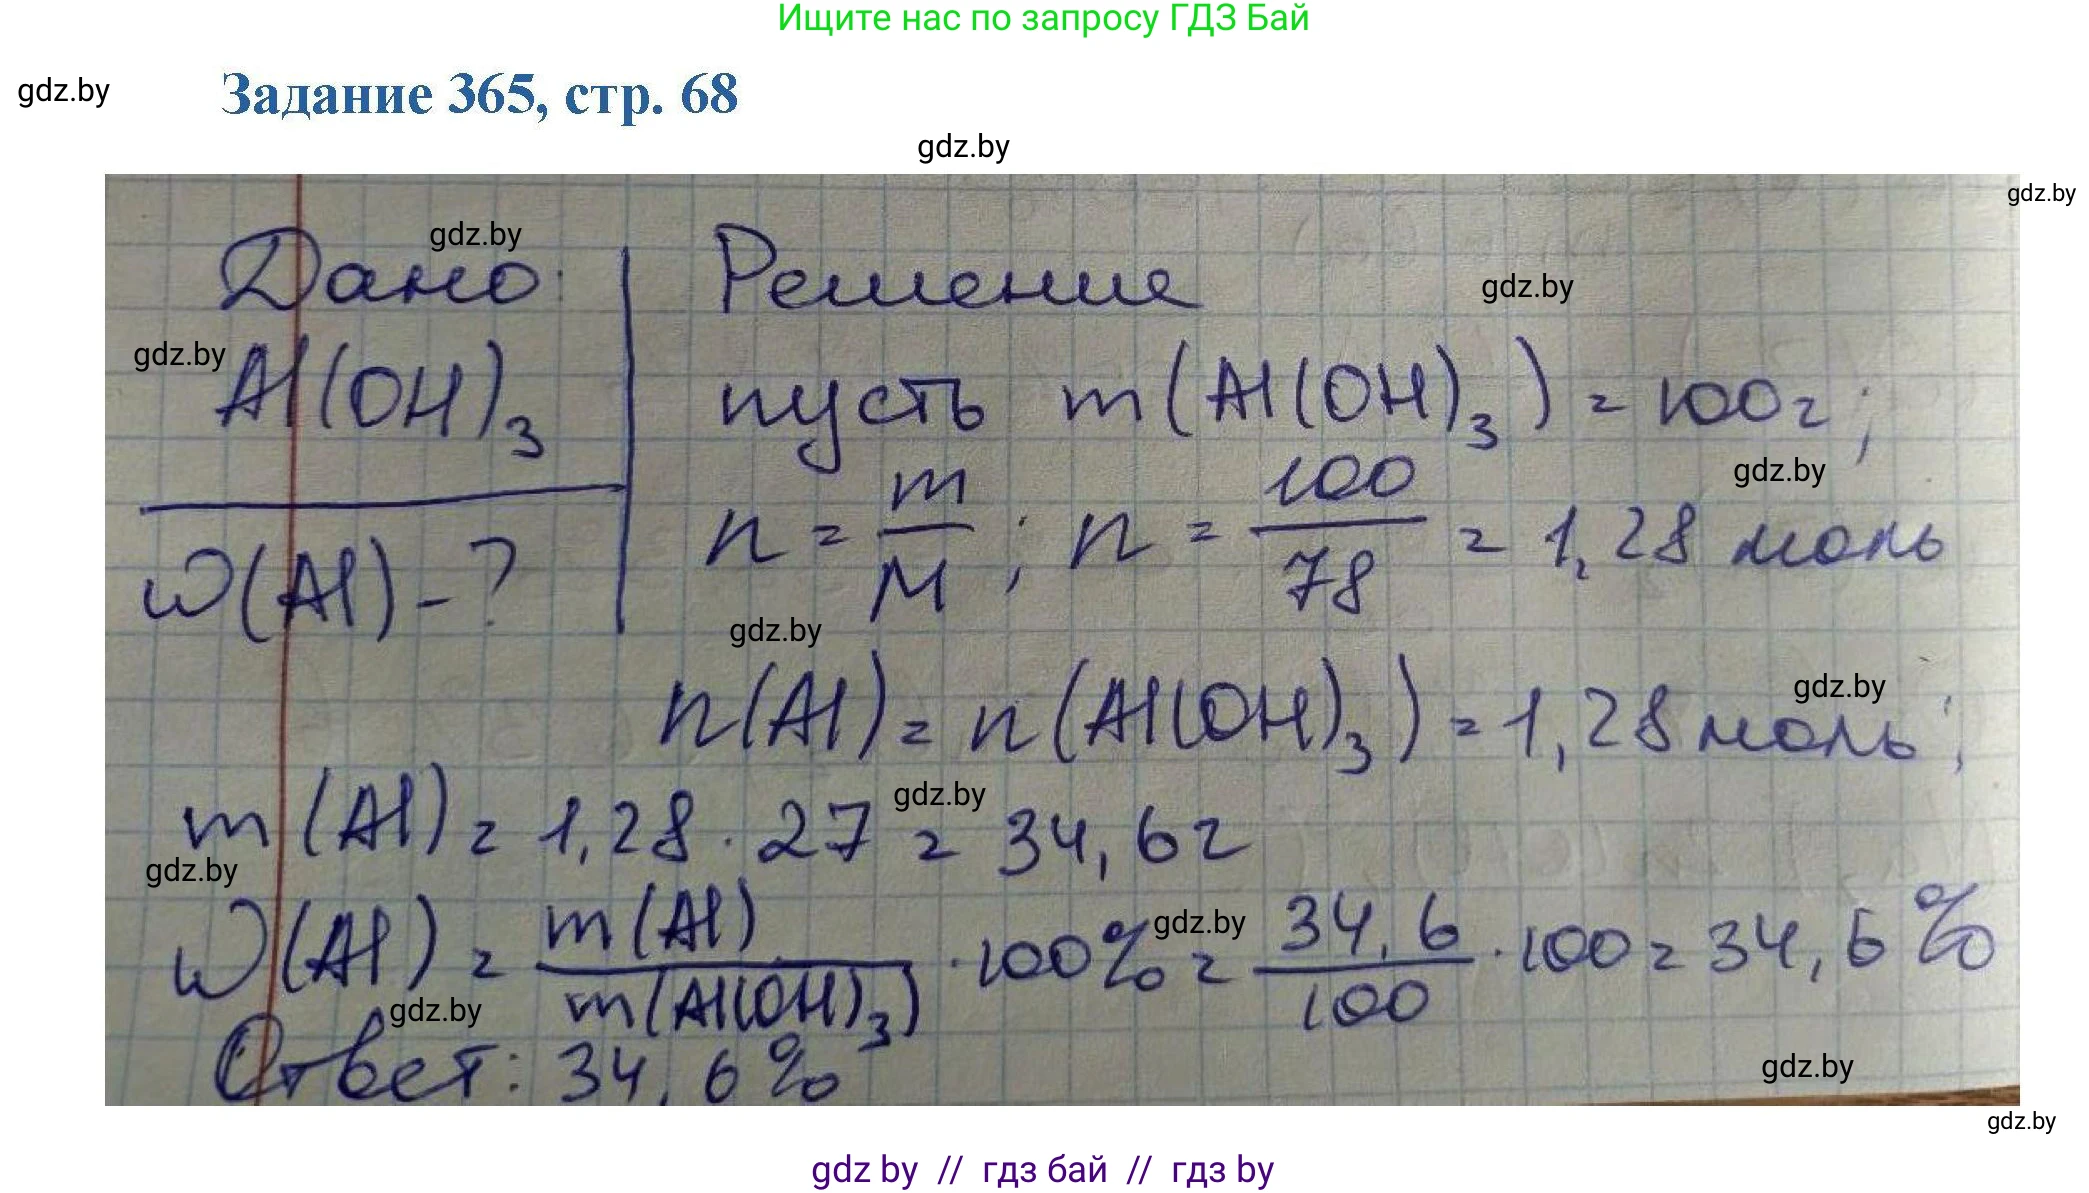 Ищите нас по запросу ГДЗ Бай
gdz.by
Задание 365, стр. 68
gdz.by
gdz.by
gdz.by
Дано: Решение
gdz.by
gdz.by
Al(OH)3 пусть m(Al(OH)3) = 100г;
gdz.by
n = m/M; n = 100/78 = 1,28 моль
W(Al) - ?
gdz.by
gdz.by
n(Al) = n(Al(OH)3) = 1,28 моль;
gdz.by
m(Al) = 1,28 · 27 = 34,6г
gdz.by
gdz.by
W(Al) = m(Al)/m(Al(OH)3) · 100% = 34,6/100 · 100 = 34,6%
gdz.by
Ответ: 34,6%
gdz.by
gdz.by
gdz by // гдз бай // гдз by